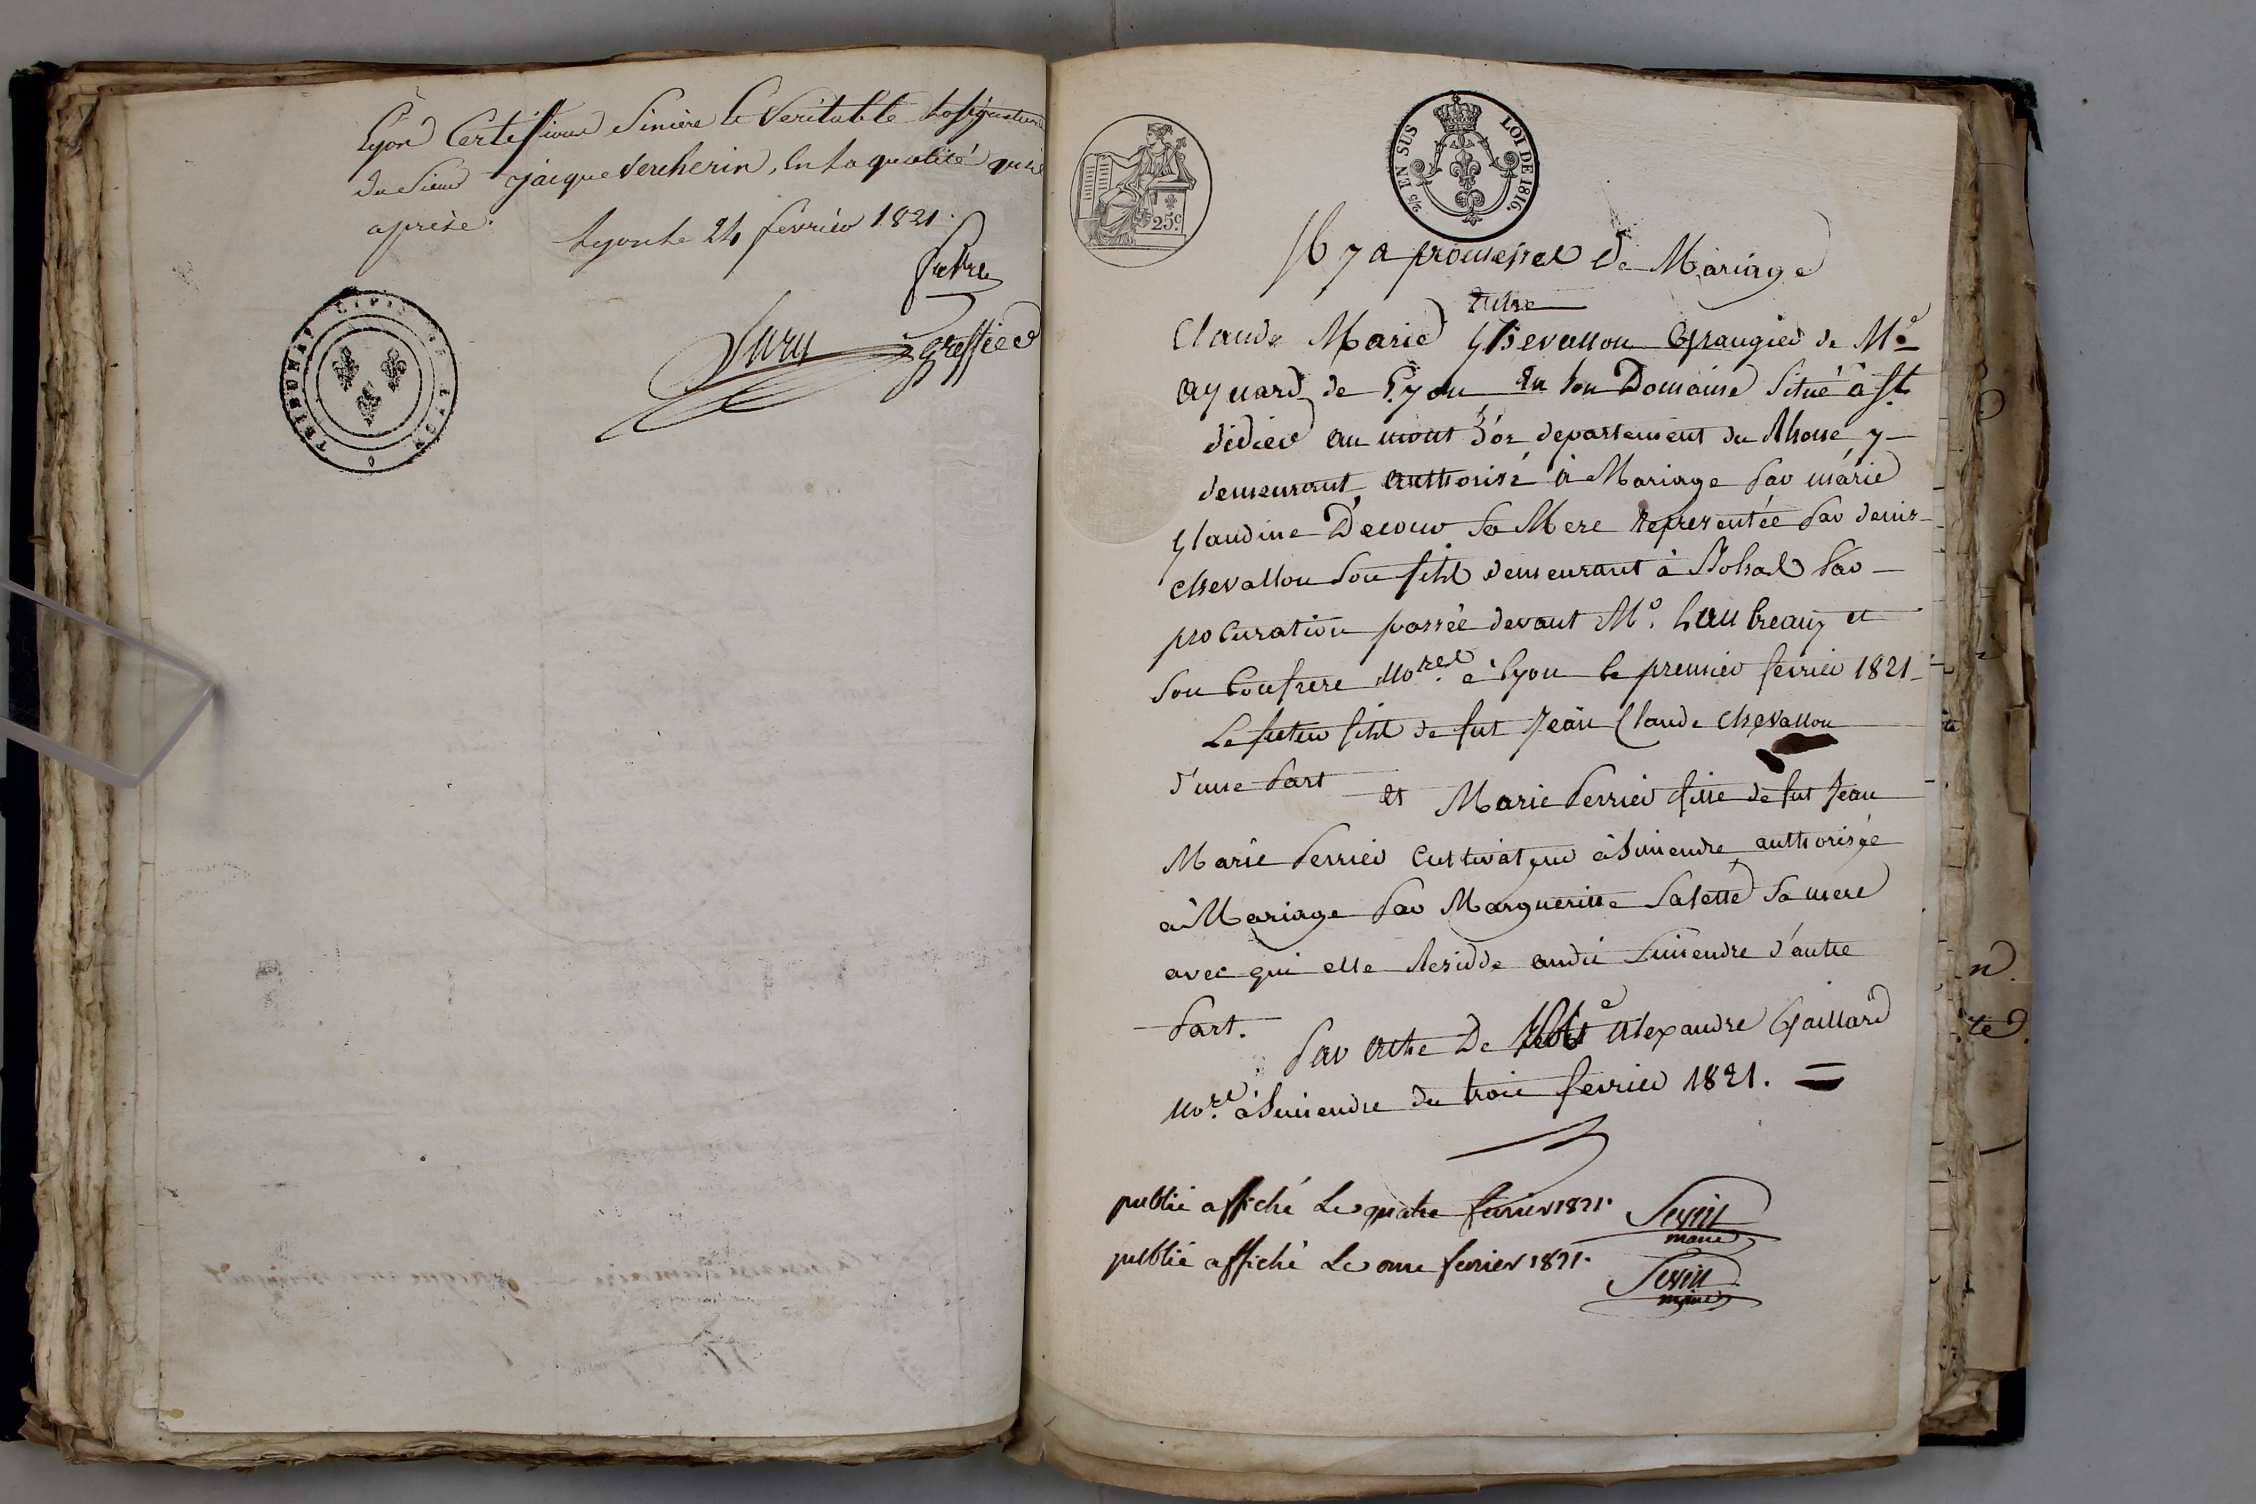 Lyon Certifions Sincère le Veritable la signature
du Sieur jacque Vercherin, En la qualité qu'il
aprise. Lyon le 24 fevrier 1821.
greffier
TRIBUNAL CIVIL DE LYON
25 EN SUS LOI DE 1816.
25c.
Il y a promesses de Mariage
Entre
Claude Marie Chevallon Grangier de Me
aynard de Lyon En son Domaine Situé à St
didier au mont d'or departement du Rhone y
demeurant, authorisé à Mariage par marie
Claudine Decour sa Mere representée par denis
chevallon son fils demeurant à par
procuration passée devant Me. et
son Confrere Nores. à Lyon le premier fevrier 1821
Le futur fils de fut Jean Claude chevallon
d'une part et Marie Perrier fille de fut Jean
Marie Perrier Cultivateur à authorisée
à Mariage par Margueritte Salette sa mere
avec qui elle Residde audit d'autre
Part. Par Acte De Me Alexandre Gaillard
Nore. à du trois fevrier 1821.
publié affiché Le quatre fevrier 1821.
maire
publié affiché Le onze fevrier 1821.
maire